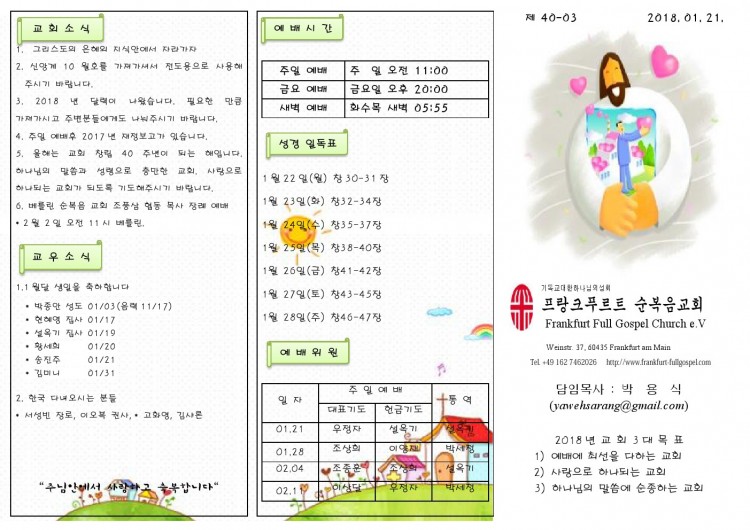 교 회 소 식
1. 그리스도의 은혜의 지식안에서 자라가자
2. 신앙계 10 월호를 가져가셔서 전도용으로 사용해
주시기 바랍니다.
3. 2018 년 달력이 나왔습니다. 필요한 만큼
가져가시고 주변분들에게도 나눠주시기 바랍니다.
4. 주일 예배후 2017년 재정보고가 있습니다.
5. 올해는 교회 창립 40 주년이 되는 해입니다.
하나님의 말씀과 성령으로 충만한 교회, 사랑으로
하나되는 교회가 되도록 기도해주시기 바랍니다.
6. 베를린 순복음 교회 조풍심 협동 목사 장례 예배
• 2 월 2 일 오전 11 시 베를린.
교 우 소 식
1.1 월달 생일을 축하합니다
• 박종만 성도 01/03(음력 11/17)
• 현혜영 집사 01/17
• 설옥기 집사 01/19
• 황세희 01/20
• 송진주 01/21
• 김미니 01/31
2. 한국 다녀오시는 분들
• 서성빈 장로, 이오복 권사, • 고화영, 김샤론
"주님안에서 사랑하고 축복합니다"
예 배 시 간
주일 예배 주 일 오전 11:00
금요 예배 금요일 오후 20:00
새벽 예배 화수목 새벽 05:55
성경 일독표
1월 22일(월) 창30-31장
1월 23일(화) 창32-34장
1월 24일(수) 창35-37장
1월 25일(목) 창38-40장
1월 26일(금) 창41-42장
1월 27일(토) 창43-45장
1월 28일(주) 창46-47장
예 배 위 원
일 자 주 일 예 배 통 역
대표기도 헌금기도
01.21 우정자 설옥기
01.28 조상희 박세정
02.04 조종훈 조상희 설옥기
02.11 이상달 우정자 박세정
제 40-03 2018. 01. 21.
기독교대한하나님의성회
프랑크푸르트 순복음교회
Frankfurt Full Gospel Church e.V
Weinstr. 37, 60435 Frankfurt am Main
Tel. +49 162 7462026 http://www.frankfurt-fullgospel.com
담임목사 : 박 용 식
(yawehsarang@gmail.com)
2018년 교 회 3 대 목 표
1) 예배에 최선을 다하는 교회
2) 사랑으로 하나되는 교회
3) 하나님의 말씀에 순종하는 교회